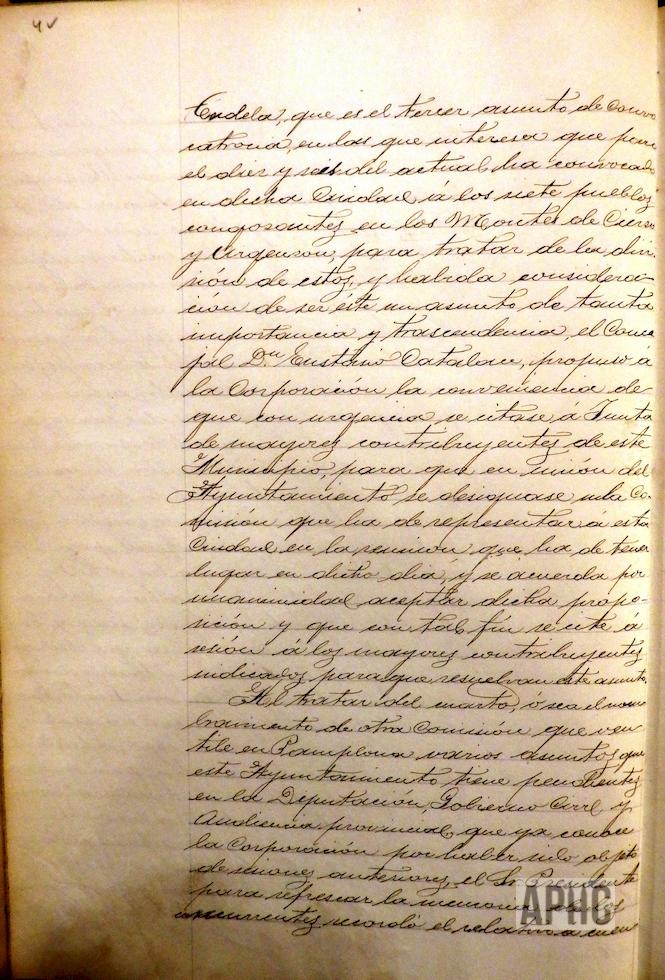 4v
Tudela, que es el tercer asunto de convo
catoria, en las que interesa que para
el diez y seis del actual, ha convocado
en dicha Ciudad á los siete pueblos
congozantes en los Montes de Cierzo
y Argenzon, para tratar de la divi
sión de estos, y habida considera-
ción de ser éste un asunto de tanta
importancia y trascendencia, el Conce
jal Dn Eustasio Catalan, propuso á
la Corporación la conveniencia de
que con urgencia se citase á Junta
de mayores contribuyentes de este
Municipio, para que en unión del
Ayuntamiento se designase la Co
misión que ha de representar á esta
Ciudad en la reunion que ha de tener
lugar en dicho dia, y se acuerda por
unanimidad aceptar dicha propo-
sición y que con tal fin se cite á
sesión á los mayores contribuyentes
indicados para que resuelvan este asunto.
Al tratar del cuarto, ó sea el nom
bramiento de otra Comisión que ven
tile en Pamplona varios asuntos que
este Ayuntamiento tiene pendientes
en la Deputación, Gobierno Civil y
Audiencia provincial, que ya conoce
la Corporación por haber sido objeto
de sesiones anteriores, el Sr. Presidente
para refrescar la memoria de los
concurrentes recordó el relativo á
APHC